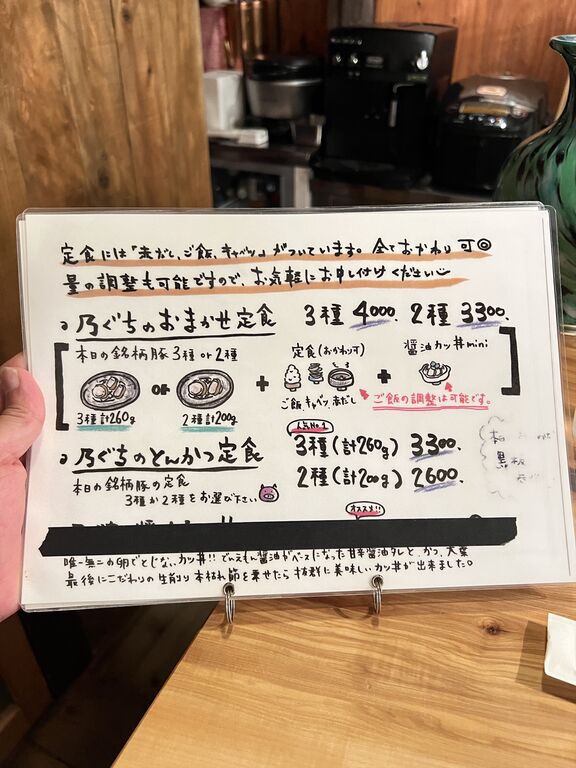 定食には「赤だし、ご飯、キャベツ」がついています。全ておかわり可◎
量の調整も可能ですので、お気軽にお申し付けください
乃ぐちのおまかせ定食 3種 4000. 2種 3300.
本日の銘柄豚3種or2種
定食(おかわり可)
醤油カツ丼mini
or + +
3種計260g 2種計200g
ご飯、キャベツ、赤だし
ご飯の調整は可能です。
人気No.1
乃ぐちのとんかつ定食 3種(計260g) 3300.
2種(計200g) 2600.
本日の銘柄豚の定食
3種か2種をお選び下さい
オススメ!!
唯一無二の卵でとじないカツ丼!!でんえもん醤油がベースになった甘辛醤油タレと、かつ、大葉
最後にこだわりの生削り本枯れ節を乗せたら抜群に美味しいカツ丼が出来ました。